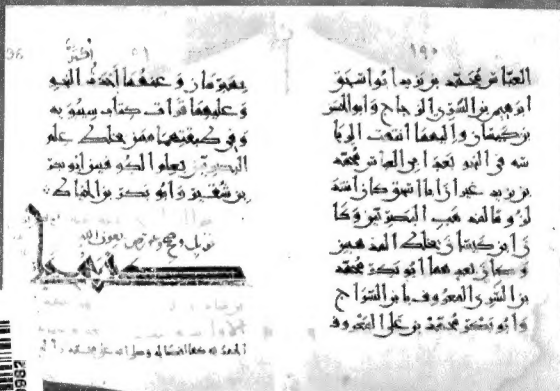 ١٩٠
العباس محمد بن يزيد ابو اسحق
ابرهيم بن السري الزجاج وابو الحسن
بن كيسان واليهما انتهت الريا
سة في النحو بعد ابي العباس محمد
بن يزيد غير ان ابا اسحق كان اشد
لزوما لمذهب البصريين وكا
ن ابن كيسان يخلط المذهبين
وكان بعدهما ابو بكر محمد
بن السري المعروف بابن السراج
وابو بكر محمد بن علي المعروف
بمبرمان وعنهما اخذت النحو
وعليهما قرات كتاب سيبويه
وفي طبقتهما ممن يخلط علم
البصريين بعلم الكوفيين ابو بكر
بن شقير وابو بكر بن الخياط
قوبل وصح بعون الله
الحمد لله وصلى الله على محمد
0982